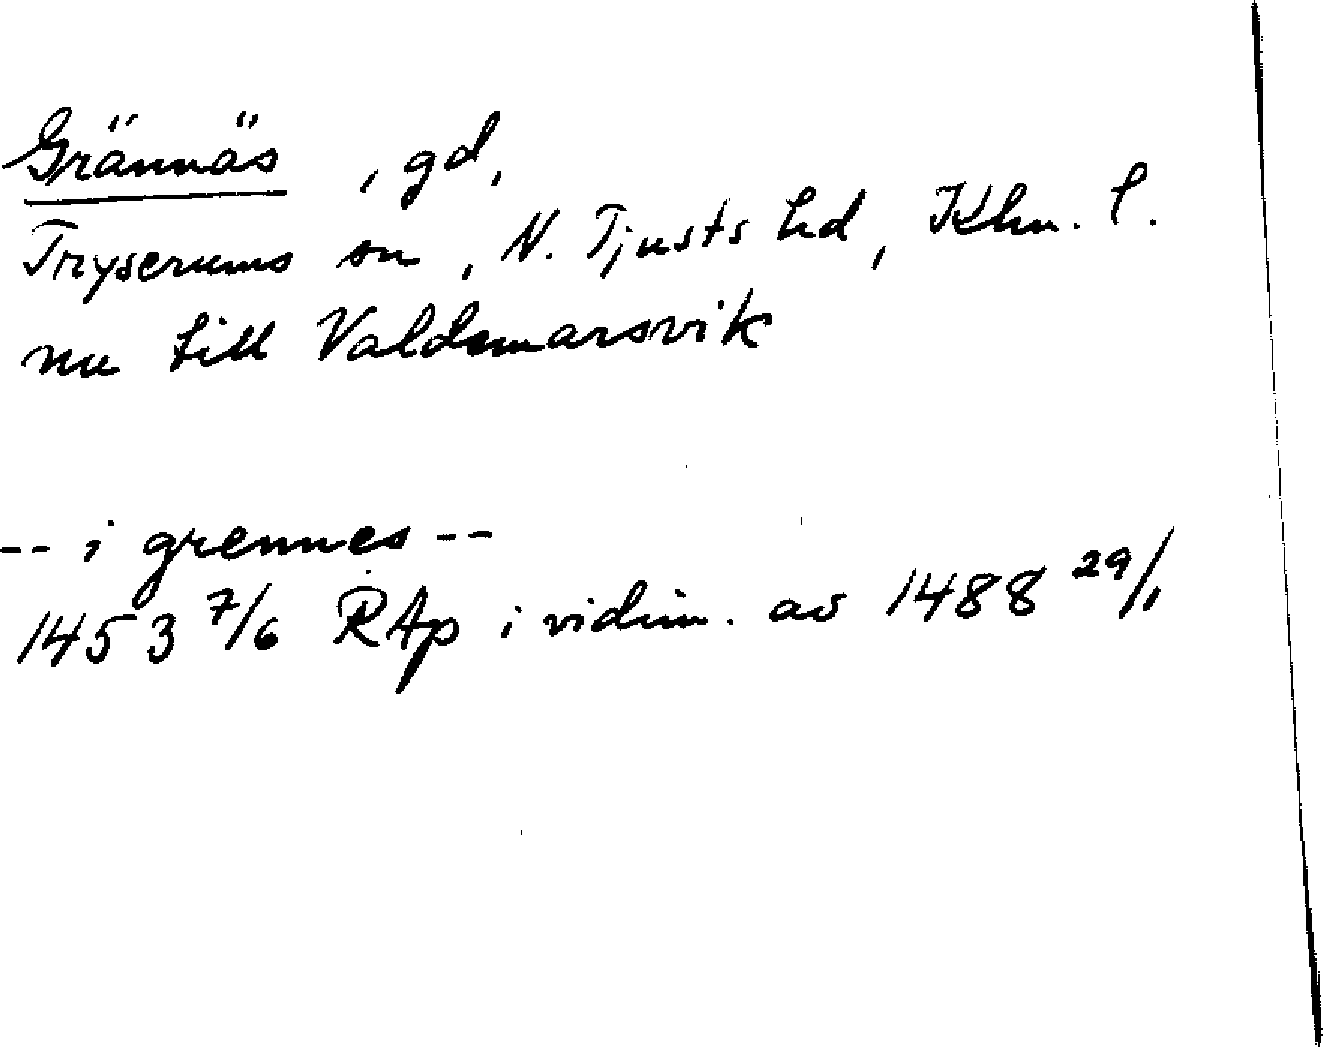 Grännäs, gd,
Tryserums sn, N. Tjusts hd, Klm. l.
nu till Valdemarsvik
-- i grennes --
1453 7/6 RAp i vidim. av 1488 29/1